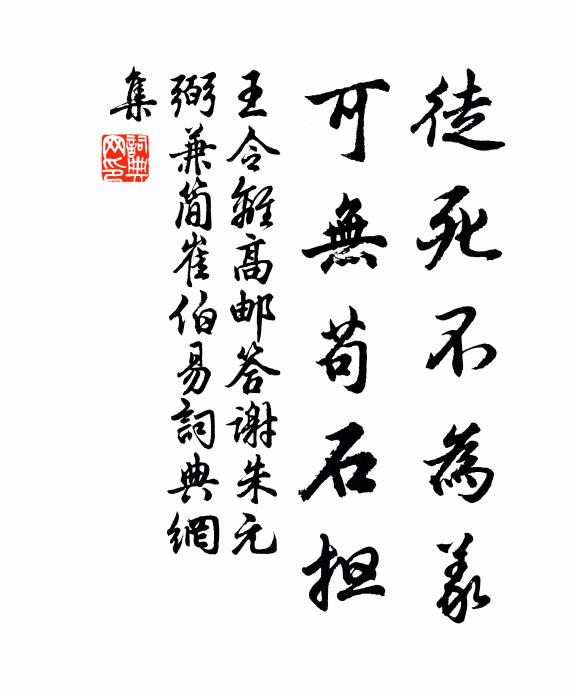 徒死不為義
可無苟石担
王令離高邮答谢朱元
弼兼簡崔伯易詞典網
集
詞典
网印